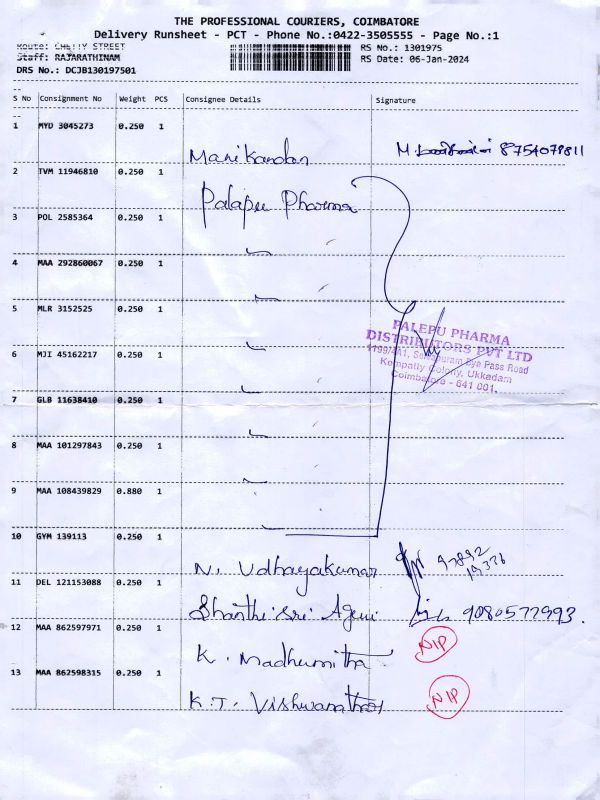 THE PROFESSIONAL COURIERS, COIMBATORE
Delivery Runsheet - PCT - Phone No.:0422-3505555 - Page No.:1
Route: CHETTY STREET
RS No.: 1301975
Staff: RAJARATHINAM
RS Date: 06-Jan-2024
DRS No.: DCJB130197501
S No Consignment No Weight PCS Consignee Details Signature
1 MYD 3045273 0.250 1
Manikandan M. 8754078811
2 TVM 11946810 0.250 1
Palapu Pharma
3 POL 2585364 0.250 1
4 MAA 292860067 0.250 1
5 MLR 3152525 0.250 1
PALEPU PHARMA
DISTRIBUTORS PVT LTD
Bye Pass Road
6 MJI 45162217 0.250 1
Kempatty Colony, Ukkadam
Coimbatore - 641 001.
7 GLB 11638410 0.250 1
8 MAA 101297843 0.250 1
9 MAA 108439829 0.880 1
10 GYM 139113 0.250 1
N. Udhayakumar 97892
19376
11 DEL 121153088 0.250 1
Shanthi Sri 9080577993.
12 MAA 862597971 0.250 1
K. Madhumitha NIP
13 MAA 862598315 0.250 1
K.T. NIP